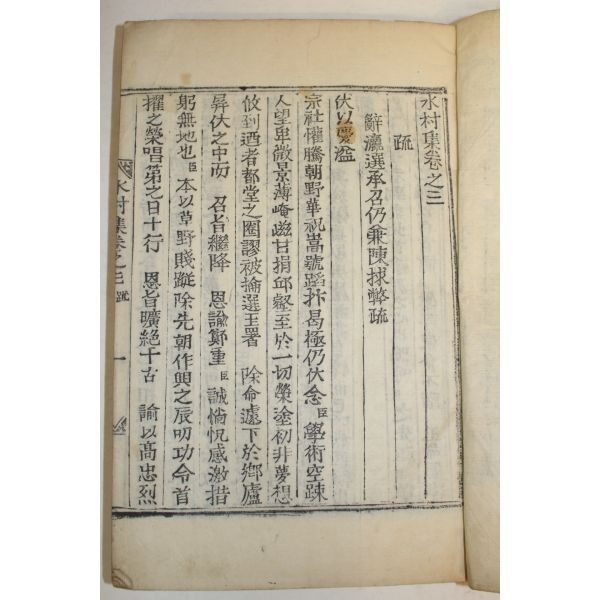 水村集卷之三
疏
辭瀛選承召仍兼陳捄弊疏
伏以慶溢
宗社懽騰朝野華祝嵩號蹈抃曷極仍伏念臣學術空踈
人望卑微景薄崦嵫甘捐邱壑至於一切榮塗初非夢想
攸到迺者都堂之圈謬被掄選玉署 除命遽下於鄕廬
屛伏之中而 召旨繼降 恩諭鄭重臣誠惝怳感激措
躬無地也臣本以草野賤蹤除先朝作興之辰叨功令首
擢之榮唱第之日十行 恩旨曠絶千古 諭以高忠烈
水村集卷之三 疏 一